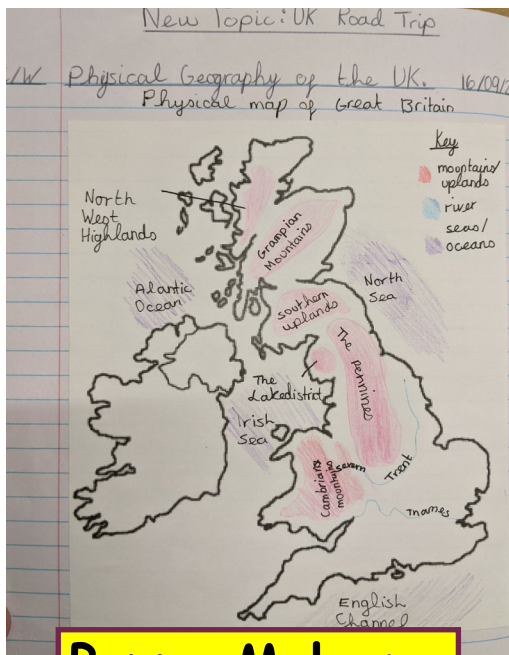 New Topic: UK Road Trip
C/W Physical Geography of the UK. 16/09/2
Physical map of Great Britain
Key
mountains/
uplands
river
seas/
oceans
North
West
Highlands
Grampian
Mountains
Alantic
Ocean
North
Sea
southern
uplands
The pennines
The
Lakedistrict
Irish
Sea
Cambrian
mountains
severn
Trent
Thames
English
Channel